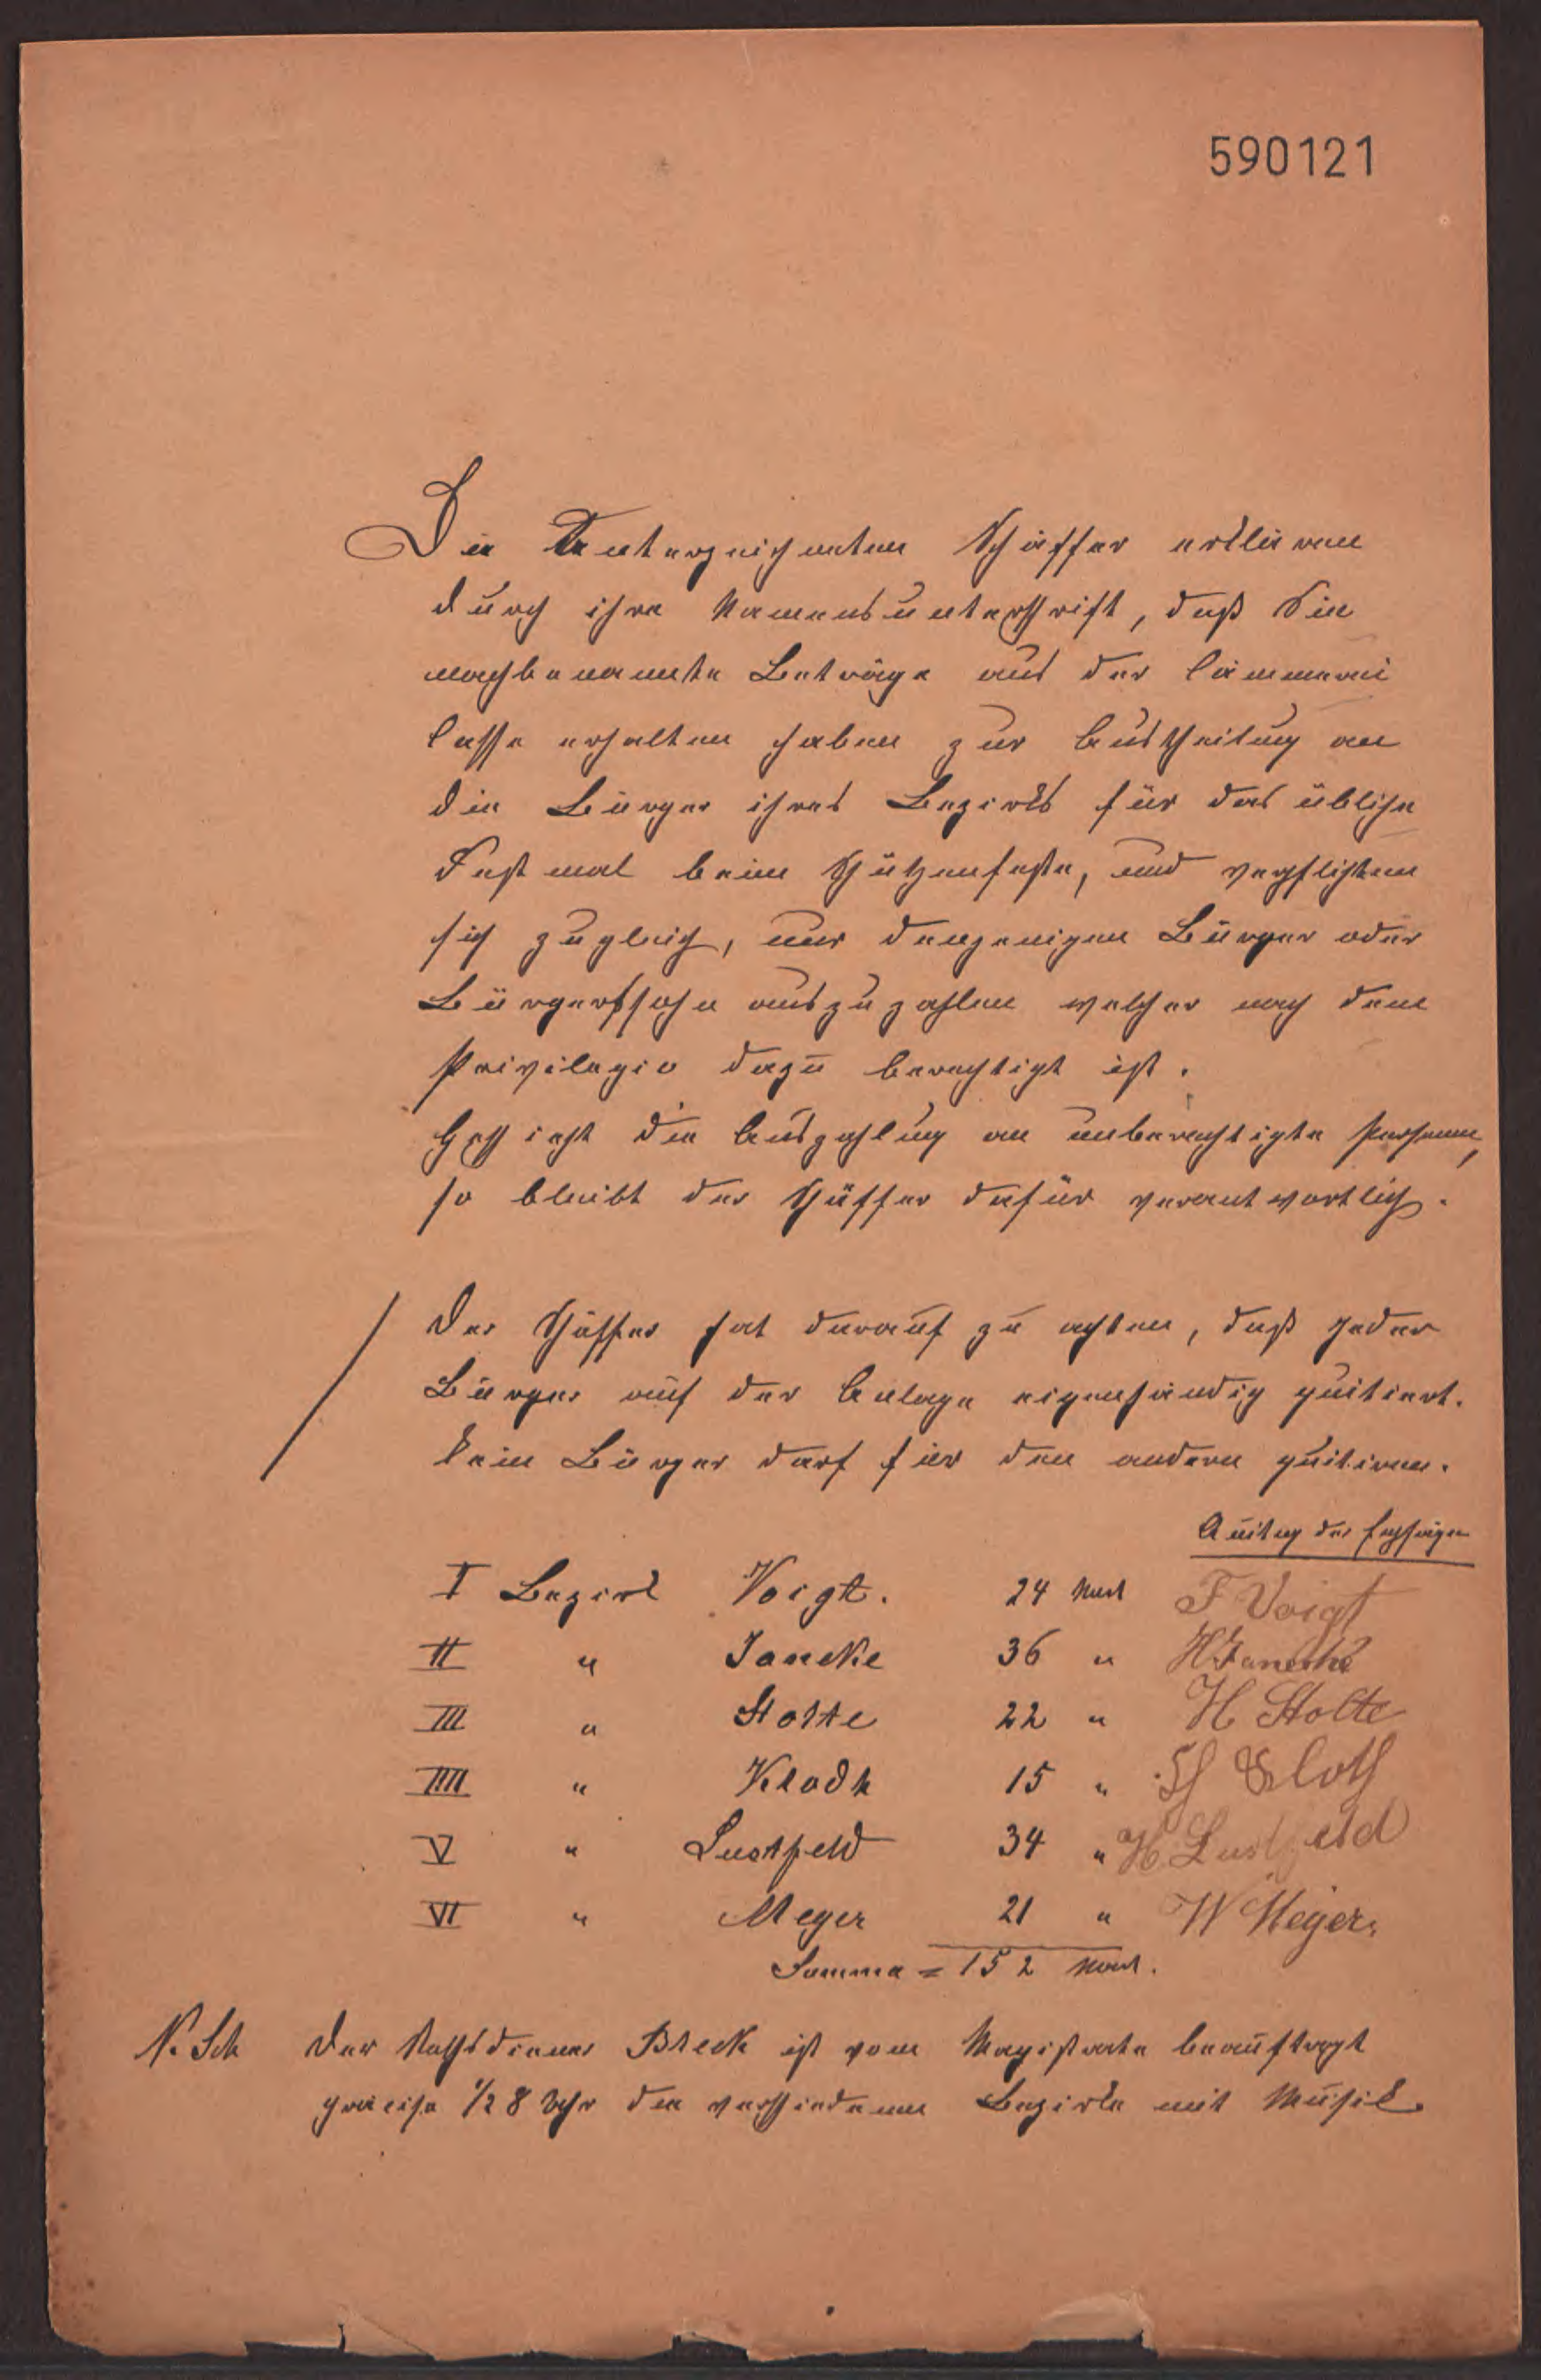 590121
Die Unterzeichneten Schäffer erklären
durch ihre Namensunterschrift, daß Sie
nachbenannte Beträge aus der Cämmerei
Casse erhalten haben zur Austheilung an
die Bürger ihres Bezirks für das übliche
Festmal beim Schützenfeste, und verpflichten
sich zugleich, nur denjenigen Bürger oder
Bürgerssohn auszuzahlen welcher nach dem
Privilegio dazu berechtigt ist.
Geschieht die Auszahlung an unberechtigte Personen,
so bleibt der Schäffer dafür verantwortlich.
Der Schäffer hat darauf zu achten, daß jeder
Bürger auf der Anlage eigenhändig quitiert.
Kein Bürger darf für den andern quitiren.
Quitug der Empfänger
I Bezirk Voigt. 24 Mark F Voigt
II " Janeke 36 " H Janecke
III " Stolte 22 " H Stolte
IIII " Klodh 15 " Kloth
V " Lustfeld 34 " H. Lustfeld
VI " Meyer 21 " W Meyer.
Summa = 152 Mark.
N. Sch Der Rathsdiener Bleck ist vom Magistrate beauftragt
präcise 1/2 8 Uhr die verschiedenen Bezirke mit Musik